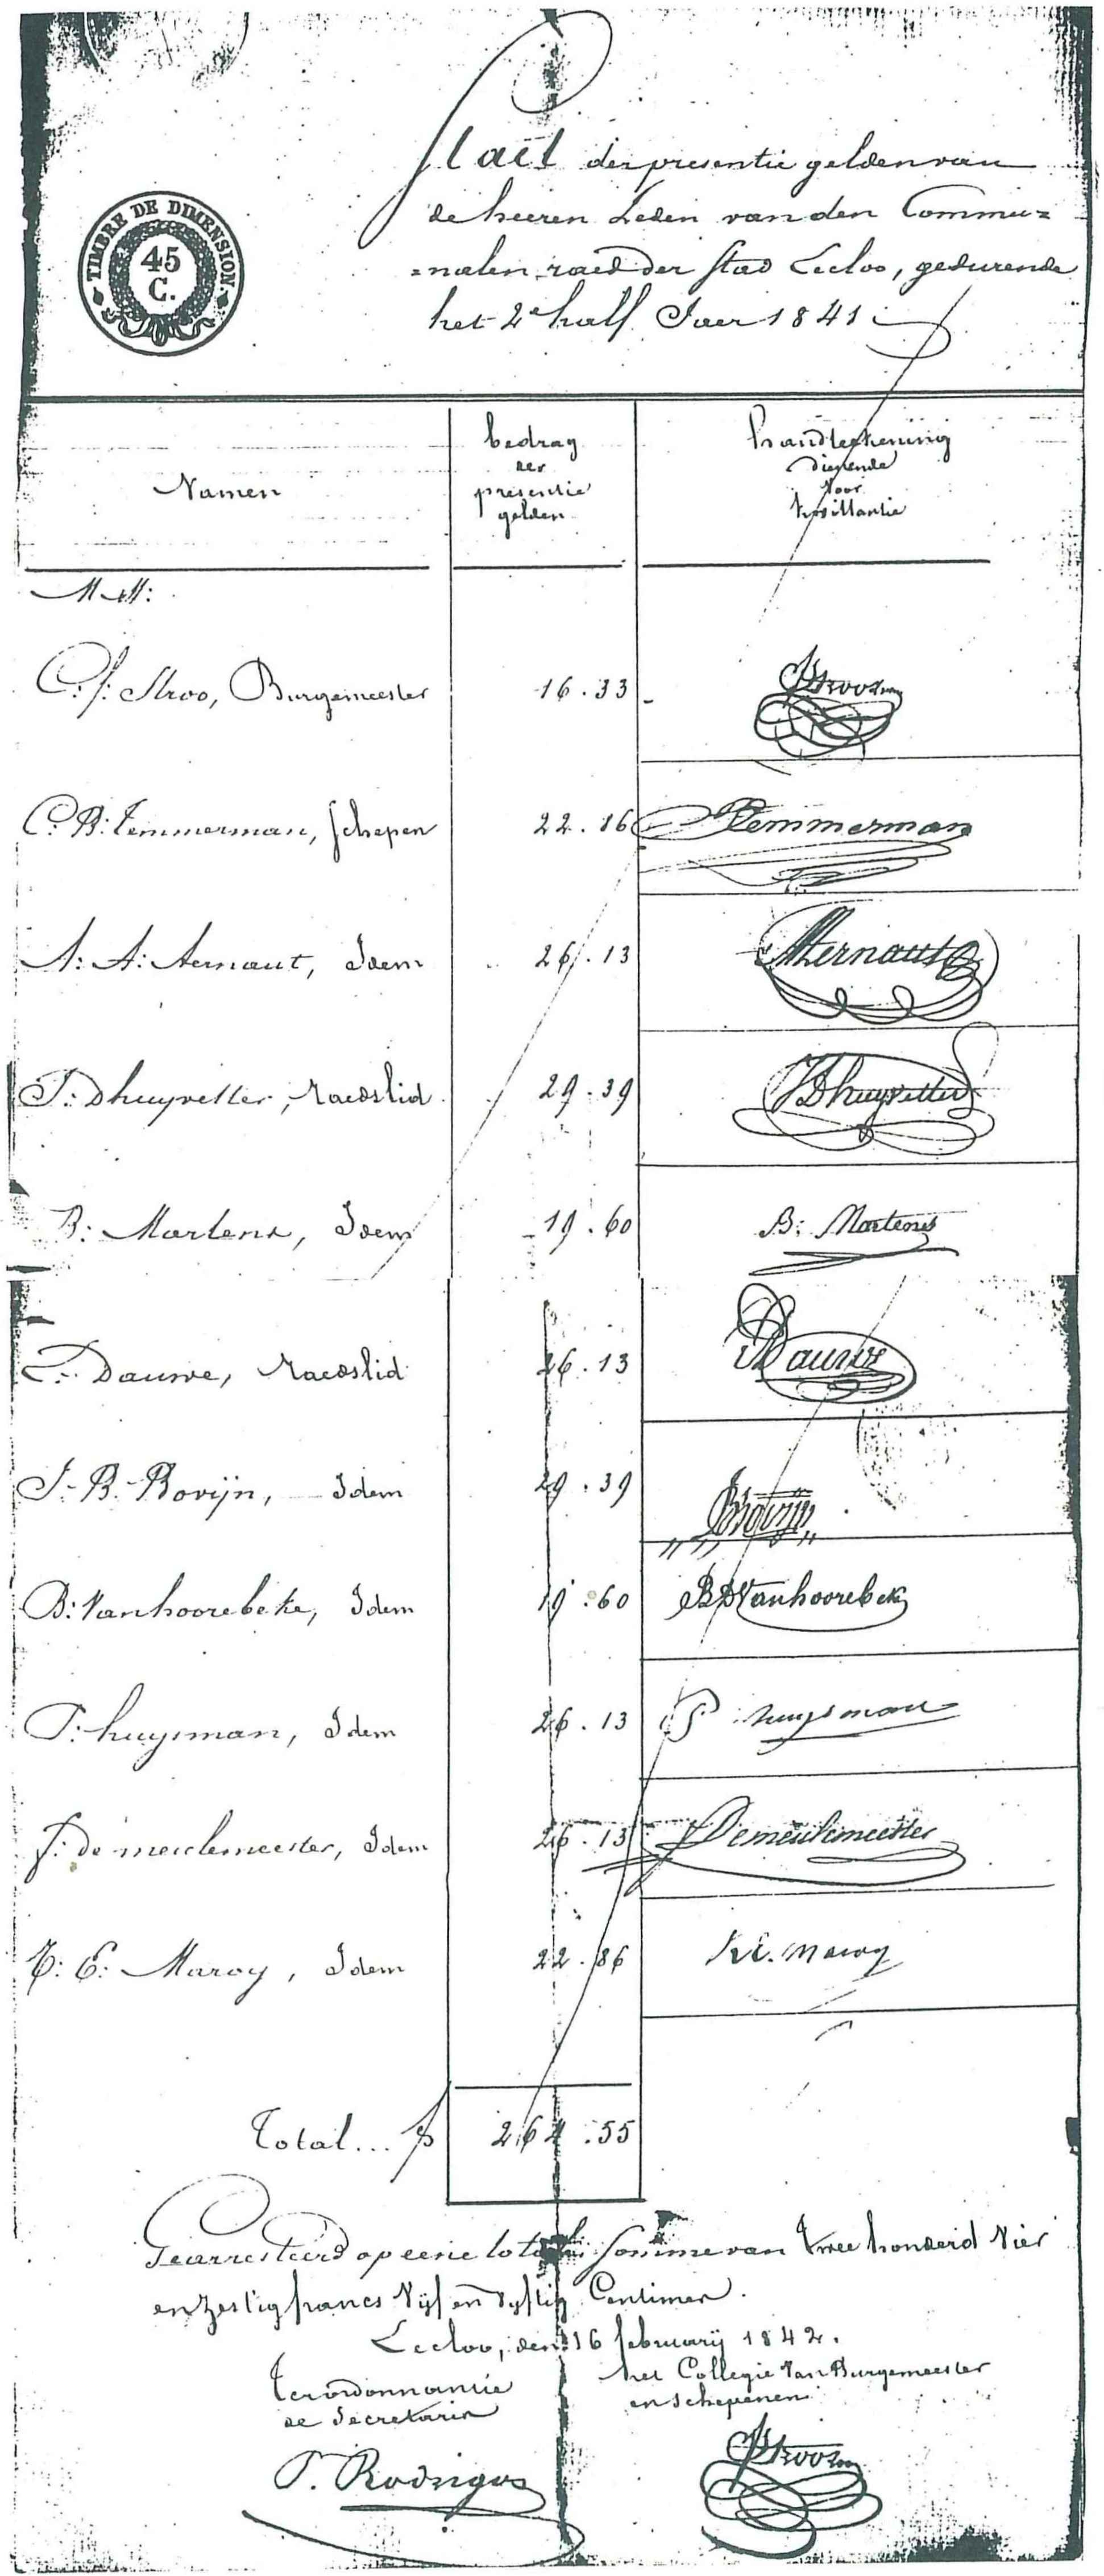 TIMBRE DE DIMENSION.
45
C.
Staet der presentie gelden van
de heeren Leden van den Commu=
=nalen raed der stad Eecloo, gedurende
het 2e half Jaer 1841
Namen
bedrag
der
presentie
gelden
handteekening
dienende
voor
kwittantie
MM:
C: J: Stroo, Burgemeester 16.33 Stroo
C: B: Temmerman, schepen 22.86 Temmerman
A: A: Aernaut, Idem 26.13 Aernaut
J: Dhuyvetter, Raedslid 29.39 Dhuyvetter
B: Martens, Idem 19.60 B: Martens
Dauwe, Raedslid 26.13 Dauwe
J-B-Bovijn, Idem 29.39 Bovijn
B: Vanhoorebeke, Idem 19.60 B Vanhoorebeke
P: huysman, Idem 26.13 P huysman
J: De meulemeester, Idem 26.13 Demeulemeester
E: Maroy, Idem 22.86 Maroy
Total... fs 264.55
Gearresteerd op eene totale somme van twee honderd Vier
en zestig francs Vijf en vyftig Centimen.
Eecloo, den 16 february 1842.
Ter ordonnantie
de Secretaris
het Collegie Van Burgemeester
en schepenen
P. Rodrigos
Stroo